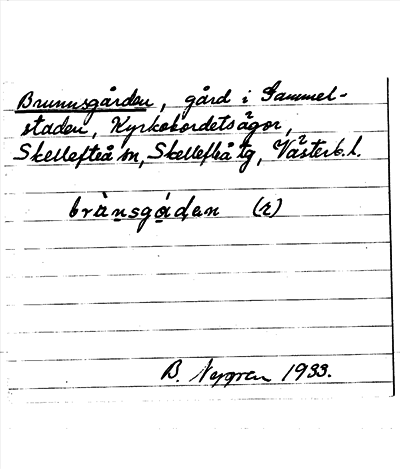 Brunnsgården, gård i Gammel-
staden, Kyrkobordets ägor,
Skellefteå sn, Skellefteå tg, Västerb. l.
brànsgádan (r)
B. Nygren 1933.